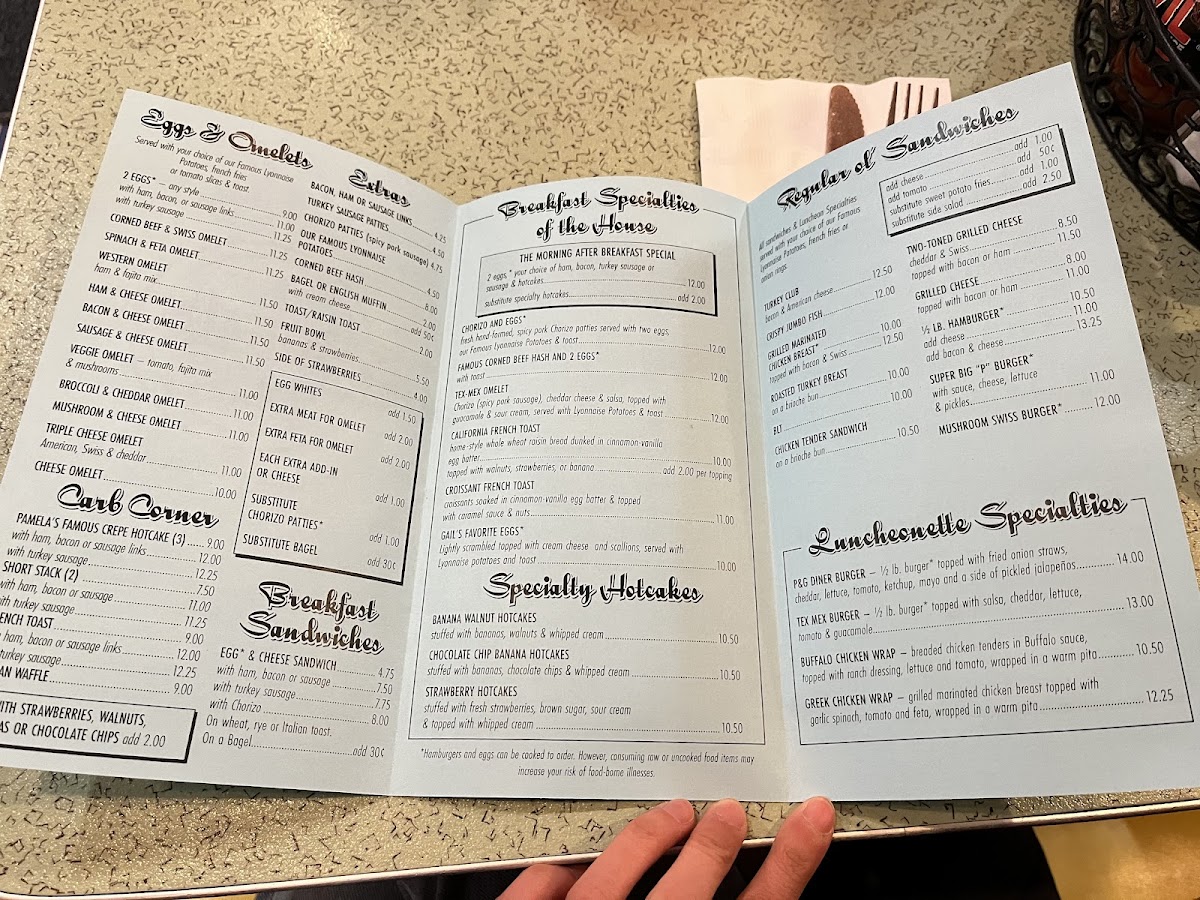 Eggs & Omelets
Served with your choice of our Famous Lyonnaise
Potatoes, french fries
or tomato slices & toast.
2 EGGS* – any style 9.00
with ham, bacon, or sausage links 11.00
with turkey sausage 11.25
CORNED BEEF & SWISS OMELET 11.25
SPINACH & FETA OMELET 11.25
WESTERN OMELET
ham & fajita mix 11.50
HAM & CHEESE OMELET 11.50
BACON & CHEESE OMELET 11.50
SAUSAGE & CHEESE OMELET 11.50
VEGGIE OMELET – tomato, fajita mix
& mushrooms 11.00
BROCCOLI & CHEDDAR OMELET 11.00
MUSHROOM & CHEESE OMELET 11.00
TRIPLE CHEESE OMELET
American, Swiss & cheddar 11.00
CHEESE OMELET 10.00
Carb Corner
PAMELA'S FAMOUS CREPE HOTCAKE (3) 9.00
with ham, bacon or sausage links 12.00
with turkey sausage 12.25
SHORT STACK (2) 7.50
with ham, bacon or sausage 11.00
with turkey sausage 11.25
ENCH TOAST 9.00
ham, bacon or sausage links 12.00
turkey sausage 12.25
AN WAFFLE 9.00
ITH STRAWBERRIES, WALNUTS,
AS OR CHOCOLATE CHIPS add 2.00
Extras
BACON, HAM OR SAUSAGE LINKS 4.25
TURKEY SAUSAGE PATTIES 4.50
CHORIZO PATTIES (spicy pork sausage) 4.75
OUR FAMOUS LYONNAISE
POTATOES 4.50
CORNED BEEF HASH 6.00
BAGEL OR ENGLISH MUFFIN 2.00
with cream cheese add 50¢
TOAST/RAISIN TOAST 2.00
FRUIT BOWL
bananas & strawberries 5.50
SIDE OF STRAWBERRIES 4.00
EGG WHITES add 1.50
EXTRA MEAT FOR OMELET add 2.00
EXTRA FETA FOR OMELET add 2.00
EACH EXTRA ADD-IN
OR CHEESE add 1.00
SUBSTITUTE
CHORIZO PATTIES* add 1.00
SUBSTITUTE BAGEL add 30¢
Breakfast
Sandwiches
EGG* & CHEESE SANDWICH 4.75
with ham, bacon or sausage 7.50
with turkey sausage 7.75
with Chorizo 8.00
On wheat, rye or Italian toast.
On a Bagel add 30¢
Breakfast Specialties
of the House
THE MORNING AFTER BREAKFAST SPECIAL
2 eggs,* your choice of ham, bacon, turkey sausage or
sausage & hotcakes 12.00
substitute specialty hotcakes add 2.00
CHORIZO AND EGGS*
fresh hand-formed, spicy pork Chorizo patties served with two eggs
our Famous Lyonnaise Potatoes & toast 12.00
FAMOUS CORNED BEEF HASH AND 2 EGGS*
with toast 12.00
TEX-MEX OMELET
Chorizo (spicy pork sausage), cheddar cheese & salsa, topped with
guacamole & sour cream, served with Lyonnaise Potatoes & toast 12.00
CALIFORNIA FRENCH TOAST
home-style whole wheat raisin bread dunked in cinnamon-vanilla
egg batter 10.00
topped with walnuts, strawberries, or banana add 2.00 per topping
CROISSANT FRENCH TOAST
croissants soaked in cinnamon-vanilla egg batter & topped
with caramel sauce & nuts 11.00
GAIL'S FAVORITE EGGS*
Lightly scrambled topped with cream cheese and scallions, served with
Lyonnaise potatoes and toast 10.00
Specialty Hotcakes
BANANA WALNUT HOTCAKES
stuffed with bananas, walnuts & whipped cream 10.50
CHOCOLATE CHIP BANANA HOTCAKES
stuffed with bananas, chocolate chips & whipped cream 10.50
STRAWBERRY HOTCAKES
stuffed with fresh strawberries, brown sugar, sour cream
& topped with whipped cream 10.50
*Hamburgers and eggs can be cooked to order. However, consuming raw or uncooked food items may
increase your risk of food-borne illnesses.
Regular ol' Sandwiches
All sandwiches & Luncheon Specialties
served with your choice of our Famous
Lyonnaise Potatoes, french fries or
onion rings.
TURKEY CLUB 12.50
bacon & American cheese
CRISPY JUMBO FISH 12.00
GRILLED MARINATED
CHICKEN BREAST* 10.00
topped with bacon & Swiss 12.50
ROASTED TURKEY BREAST
on a brioche bun 10.00
BLT 10.00
CHICKEN TENDER SANDWICH
on a brioche bun 10.50
add cheese add 1.00
add tomato add 50¢
substitute sweet potato fries add 1.00
substitute side salad add 2.50
TWO-TONED GRILLED CHEESE
cheddar & Swiss 8.50
topped with bacon or ham 11.50
GRILLED CHEESE 8.00
topped with bacon or ham 11.00
½ LB. HAMBURGER* 10.50
add cheese 11.00
add bacon & cheese 13.25
SUPER BIG "P" BURGER*
with sauce, cheese, lettuce
& pickles 11.00
MUSHROOM SWISS BURGER* 12.00
Luncheonette Specialties
P&G DINER BURGER – ½ lb. burger* topped with fried onion straws,
cheddar, lettuce, tomato, ketchup, mayo and a side of pickled jalapeños 14.00
TEX MEX BURGER – ½ lb. burger* topped with salsa, cheddar, lettuce,
tomato & guacamole 13.00
BUFFALO CHICKEN WRAP – breaded chicken tenders in Buffalo sauce,
topped with ranch dressing, lettuce and tomato, wrapped in a warm pita 10.50
GREEK CHICKEN WRAP – grilled marinated chicken breast topped with
garlic spinach, tomato and feta, wrapped in a warm pita 12.25